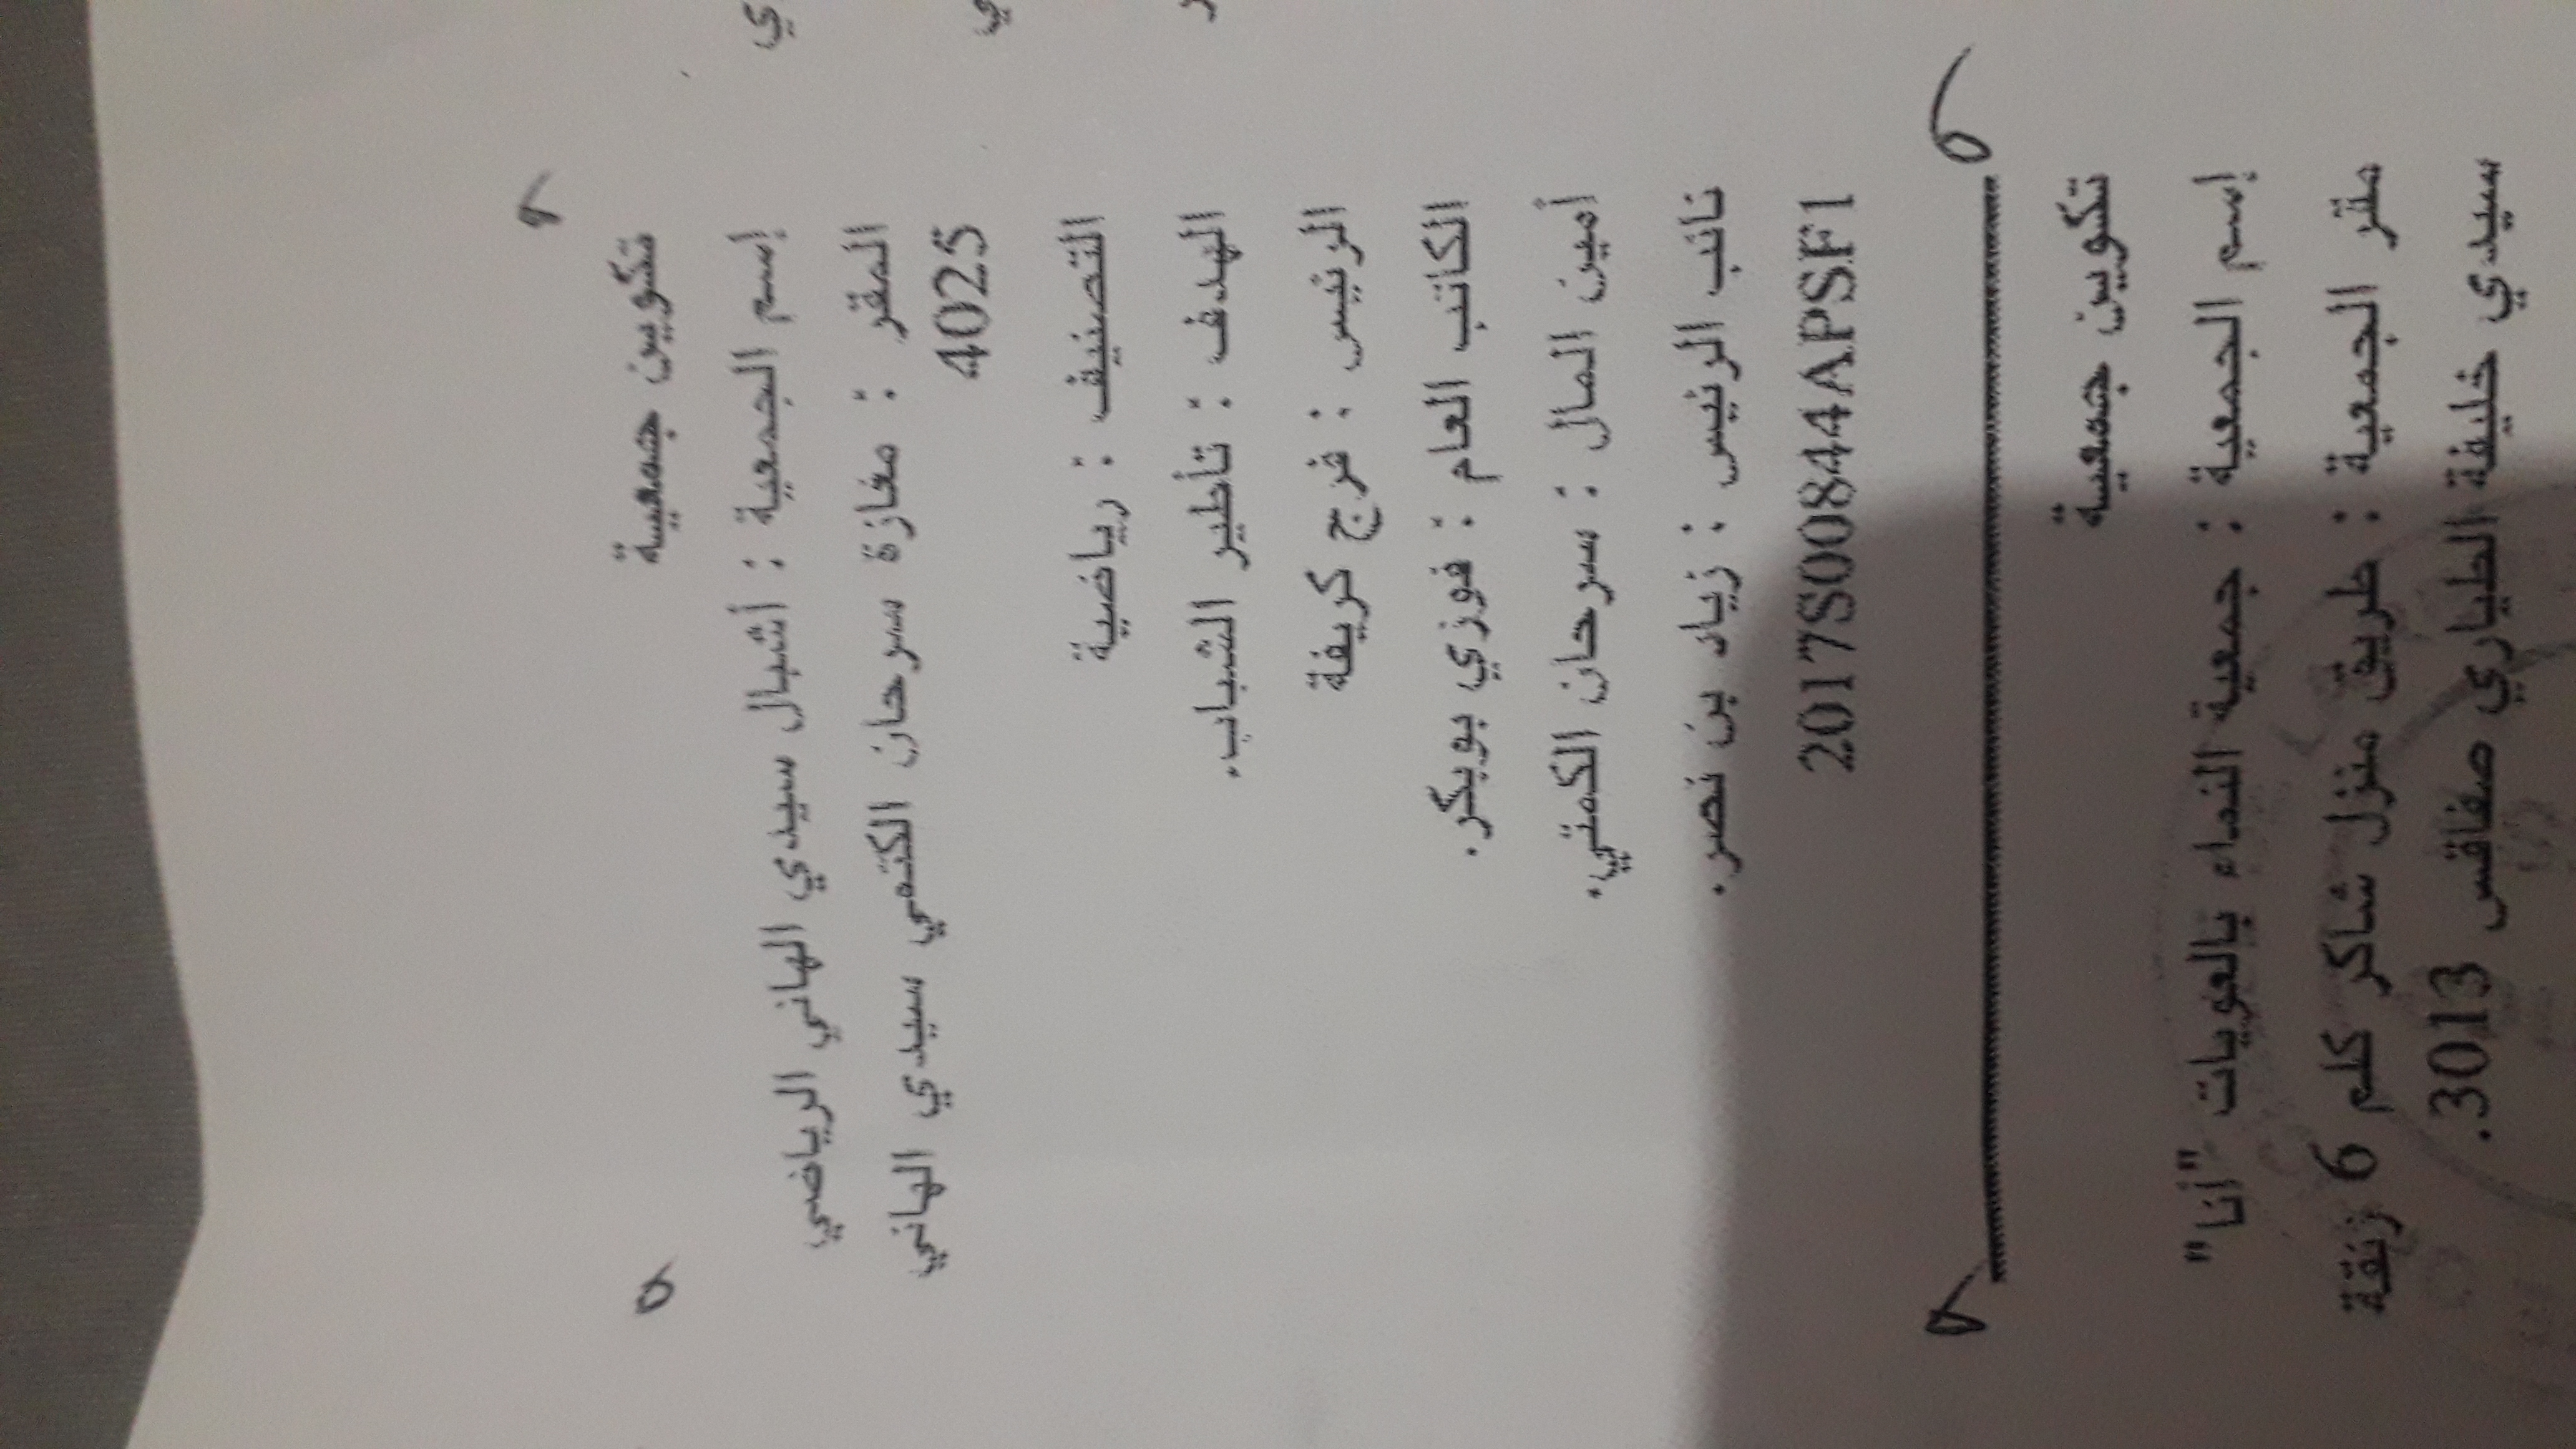 تكوين جمعية
إسم الجمعية : أشبال سيدي الهاني الرياضي
المقر : مغازة سرحان الكتمي سيدي الهاني
4025
التصنيف : رياضية
الهدف : تأطير الشباب.
الرئيس : فرج كريفة
الكاتب العام : فوزي بوبكر.
أمين المال : سرحان الكمتي.
نائب الرئيس : زياد بن نصر.
2017S00844APSF1
تكوين جمعية
إسم الجمعية : جمعية النداء بالعوبات "أنا"
مقر الجمعية : طريق منزل شاكر كلم 6 زنقة
سيدي خليفة الطياري صفاقس 3013.